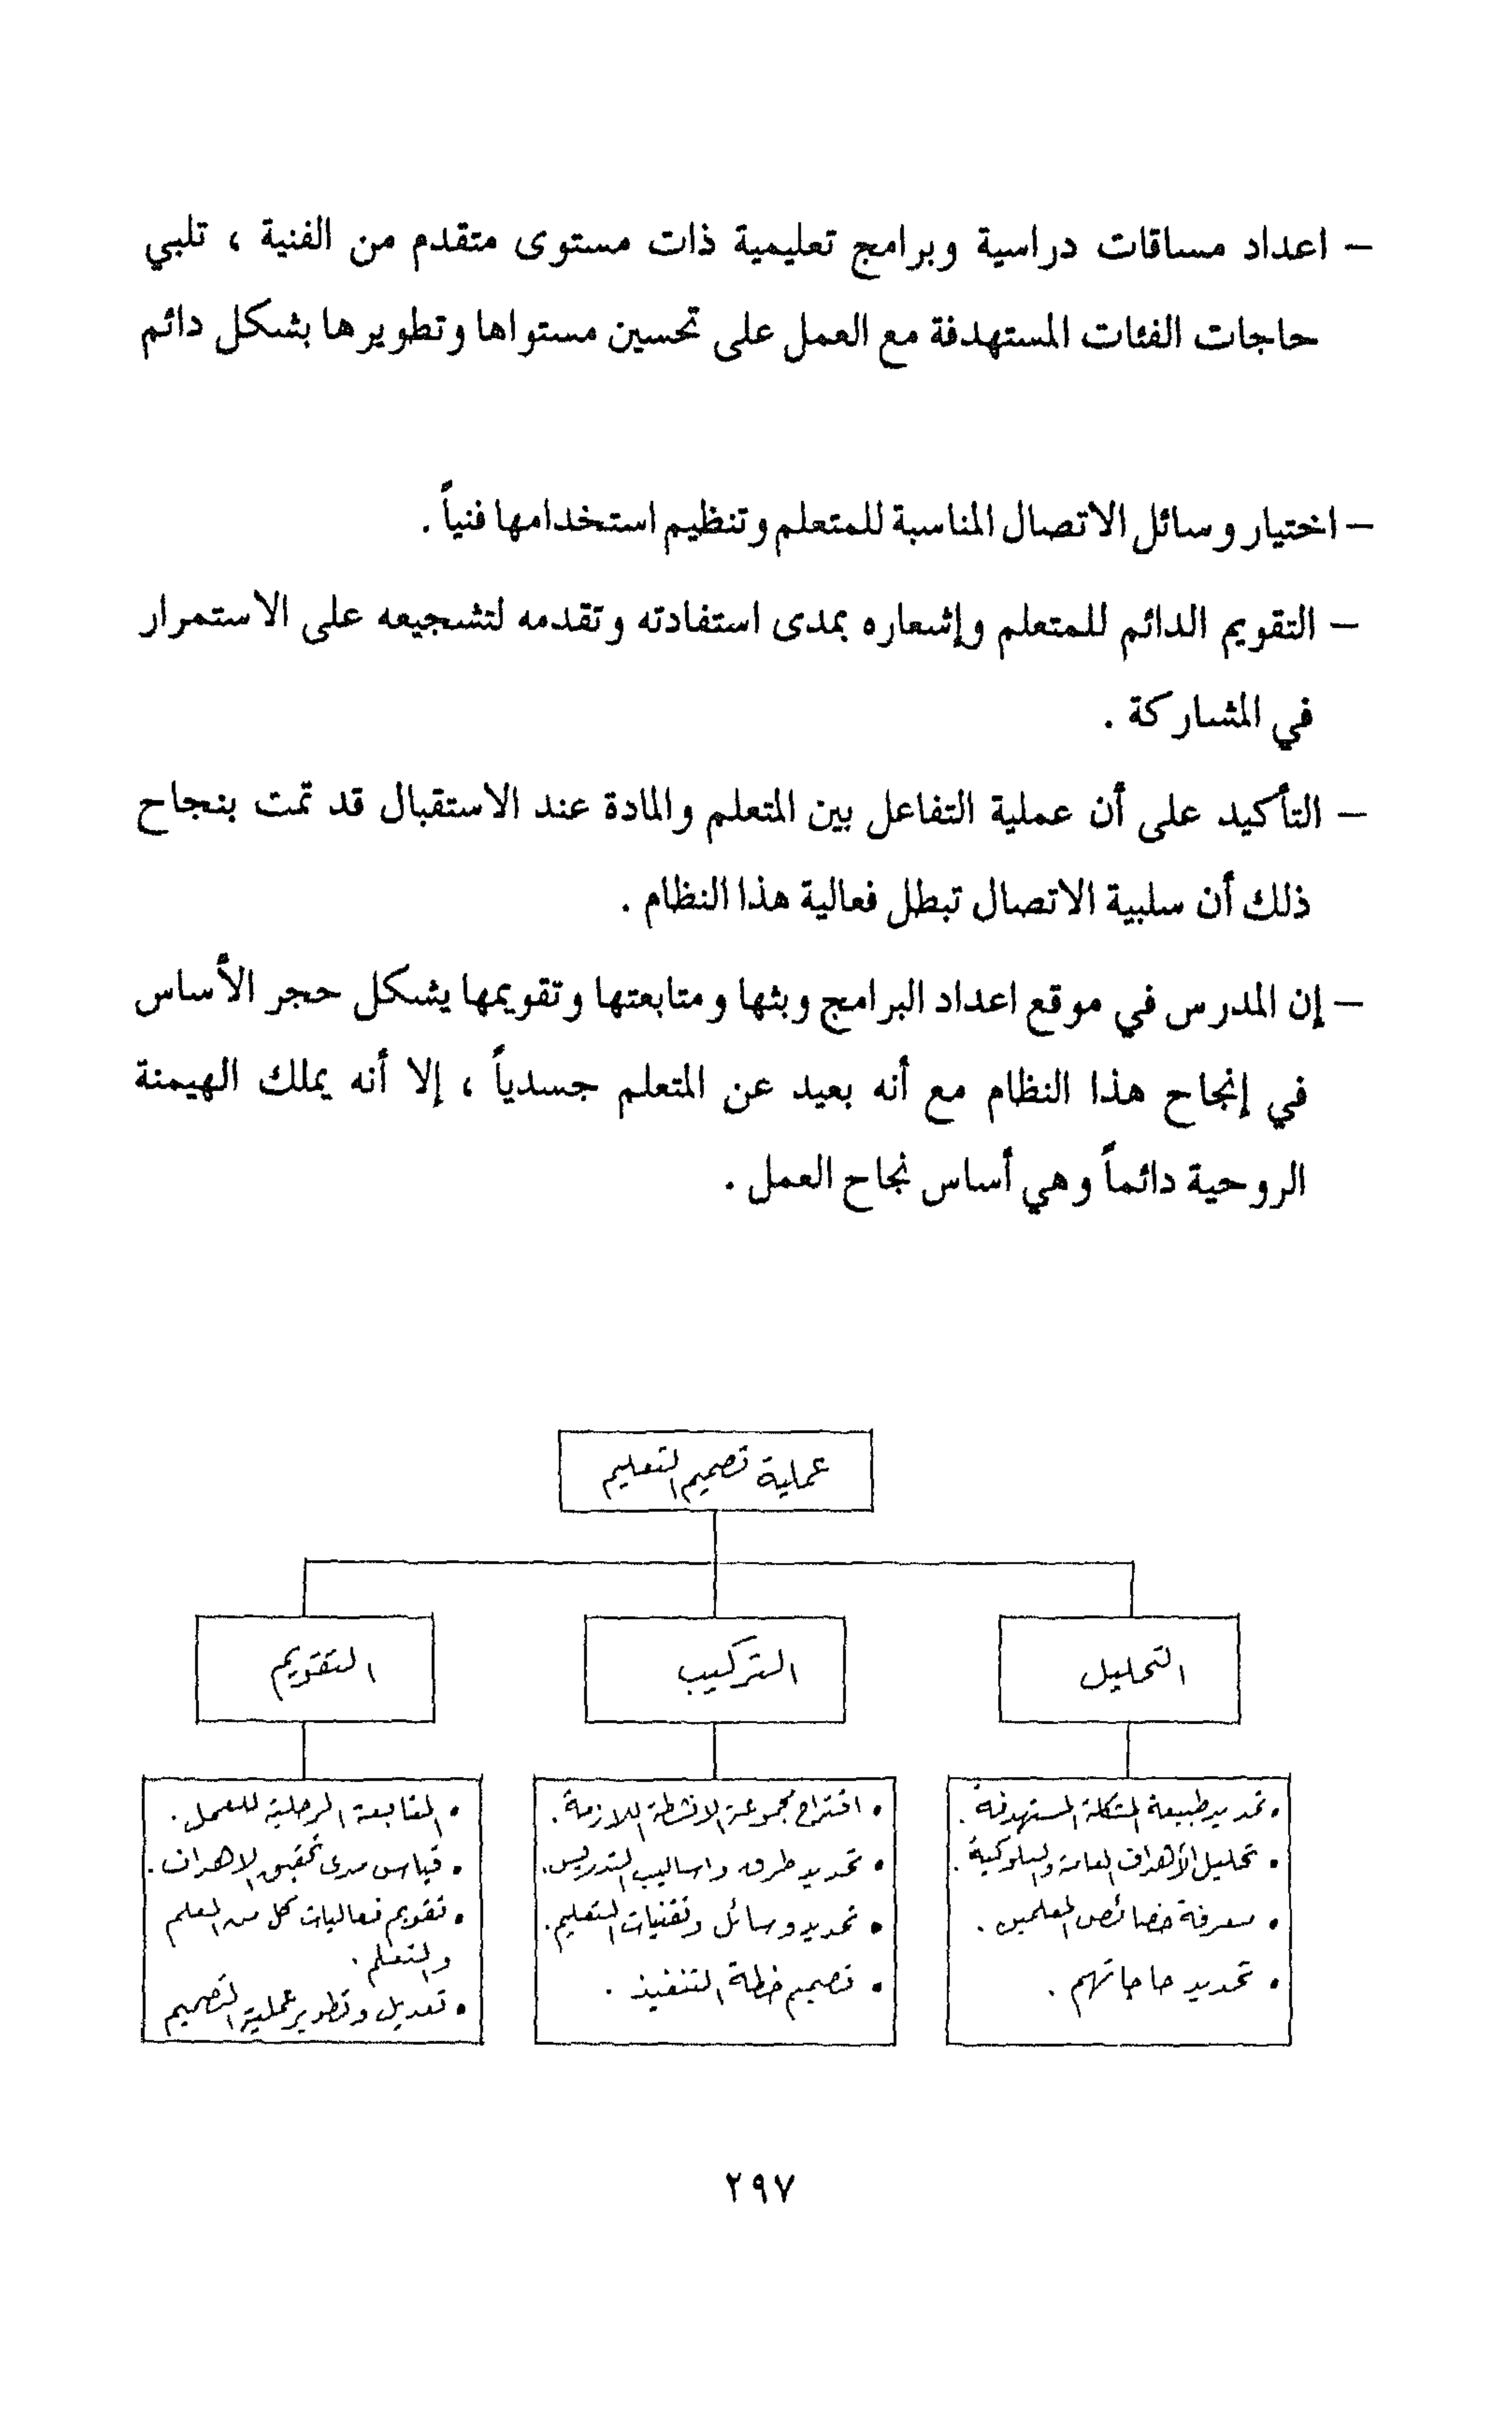 – اعداد مساقات دراسية وبرامج تعليمية ذات مستوى متقدم من الفنية ، تلبي
حاجات الفئات المستهدفة مع العمل على تحسين مستواها وتطويرها بشكل دائم
– اختيار وسائل الاتصال المناسبة للمتعلم وتنظيم استخدامها فنياً .
– التقويم الدائم للمتعلم وإشعاره بمدى استفادته وتقدمه لتشجيعه على الاستمرار
في المشاركة .
– التأكيد على أن عملية التفاعل بين المتعلم والمادة عند الاستقبال قد تمت بنجاح
ذلك أن سلبية الاتصال تبطل فعالية هذا النظام .
– إن المدرس في موقع اعداد البرامج وبثها ومتابعتها وتقويمها يشكل حجر الأساس
في إنجاح هذا النظام مع أنه بعيد عن المتعلم جسدياً ، إلا أنه يملك الهيمنة
الروحية دائماً وهي أساس نجاح العمل .
عملية تصميم التعليم
التحليل
التركيب
التقويم
• تحديد طبيعة المشكلة المستهدفة .
• تحليل الأهداف العامة والسلوكية .
• معرفة خصائص المعلمين .
• تحديد حاجاتهم .
• اقتراح مجموعة الانشطة اللازمة .
• تحديد طرق واساليب التدريس .
• تحديد وسائل وتقنيات التعليم .
• تصميم خطة التنفيذ .
• المتابعة المرحلية للعمل .
• قياس مدى تحقيق الاهداف .
• تقويم فعاليات كل من المعلم
والمتعلم .
• تعديل وتطوير عملية التصميم
٢٩٧